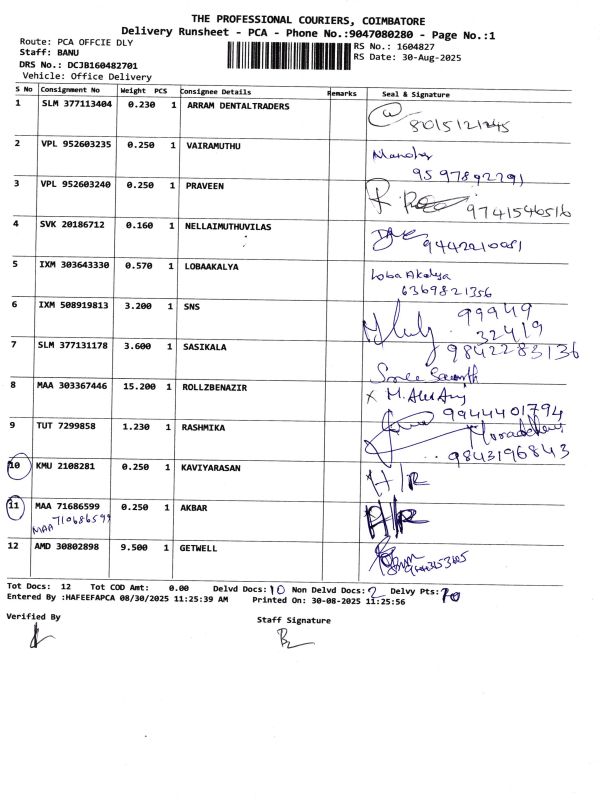 THE PROFESSIONAL COURIERS, COIMBATORE
Delivery Runsheet - PCA - Phone No.:9047080280 - Page No.:1
Route: PCA OFFCIE DLY
RS No.: 1604827
Staff: BANU
RS Date: 30-Aug-2025
DRS No.: DCJB160482701
Vehicle: Office Delivery
S No Consignment No Weight PCS Consignee Details Remarks Seal & Signature
1 SLM 377113404 0.230 1 ARRAM DENTALTRADERS
2 VPL 952603235 0.250 1 VAIRAMUTHU
9597892291
3 VPL 952603240 0.250 1 PRAVEEN
9741546516
4 SVK 20186712 0.160 1 NELLAIMUTHUVILAS
5 IXM 303643330 0.570 1 LOBAAKALYA
Loba Akalya
6369821356
6 IXM 508919813 3.200 1 SNS
99949
32419
7 SLM 377131178 3.600 1 SASIKALA
9842283136
8 MAA 303367446 15.200 1 ROLLZBENAZIR
9944401794
9 TUT 7299858 1.230 1 RASHMIKA
9843196843
10 KMU 2108281 0.250 1 KAVIYARASAN
H/R
11 MAA 71686599 0.250 1 AKBAR
H/R
MAA 710686599
12 AMD 30802898 9.500 1 GETWELL
Tot Docs: 12 Tot COD Amt: 0.00 Delvd Docs: 10 Non Delvd Docs: 2 Delvy Pts: 10
Entered By :HAFEEFAPCA 08/30/2025 11:25:39 AM Printed On: 30-08-2025 11:25:56
Verified By
Staff Signature